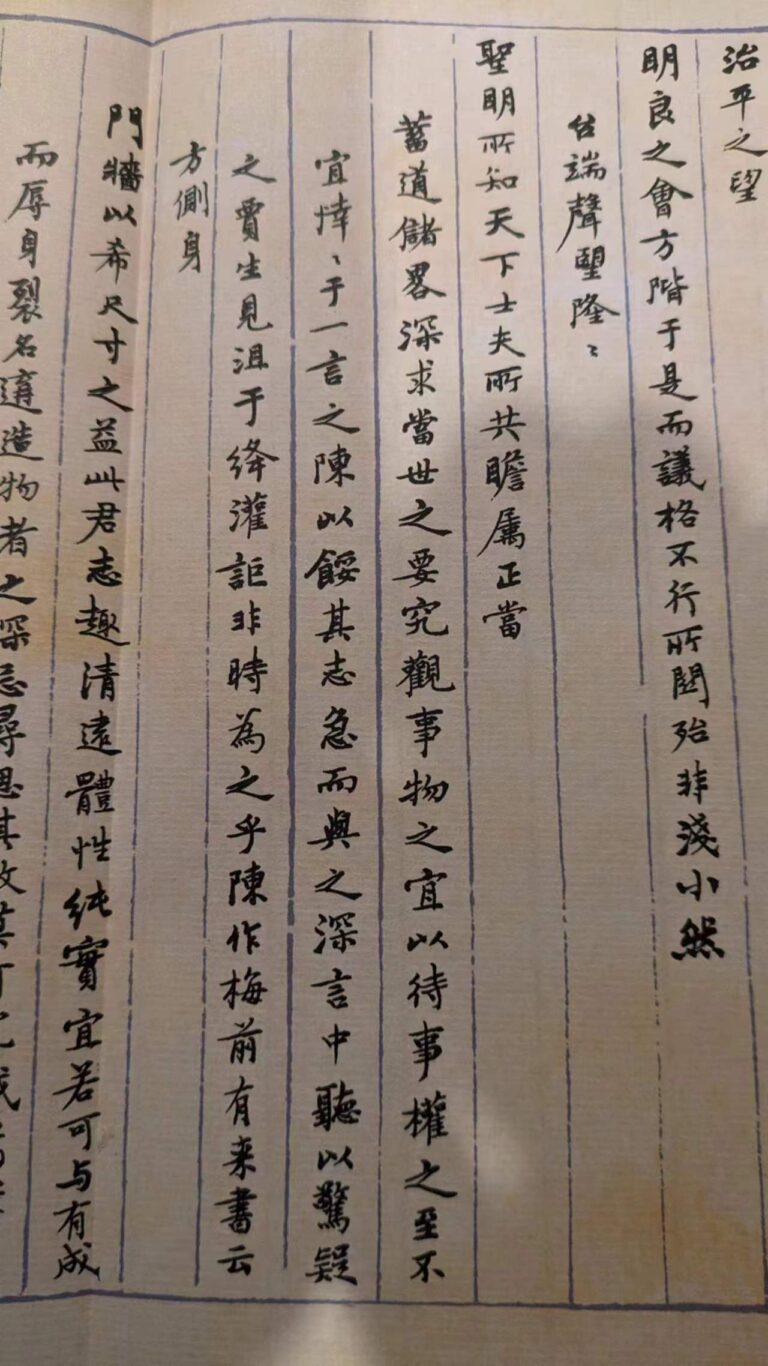 治平之望
明良之會方階于是而議格不行所關殆非淺小然
台端聲望隆隆
聖明所知天下士夫所共瞻屬正當
蓄道儲畧深求當世之要究觀事物之宜以待事權之至不
宜悻〻于一言之陳以餒其志急而與之深言中聽以驚疑
之賈生見沮于绛灌詎非時為之乎陳作梅前有来書云
方側身
門牆以希尺寸之益此君志趣清遠體性純實宜若可与有成
而辱身裂名遘造物者之深忌尋思其故莫可